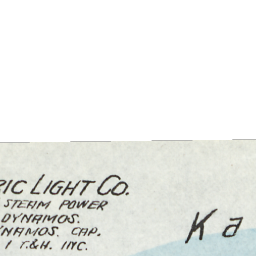 RIC LIGHT CO.
STEAM POWER
DYNAMOS.
YNAMOS. CAP.
1 T.&H. INC.
Ka